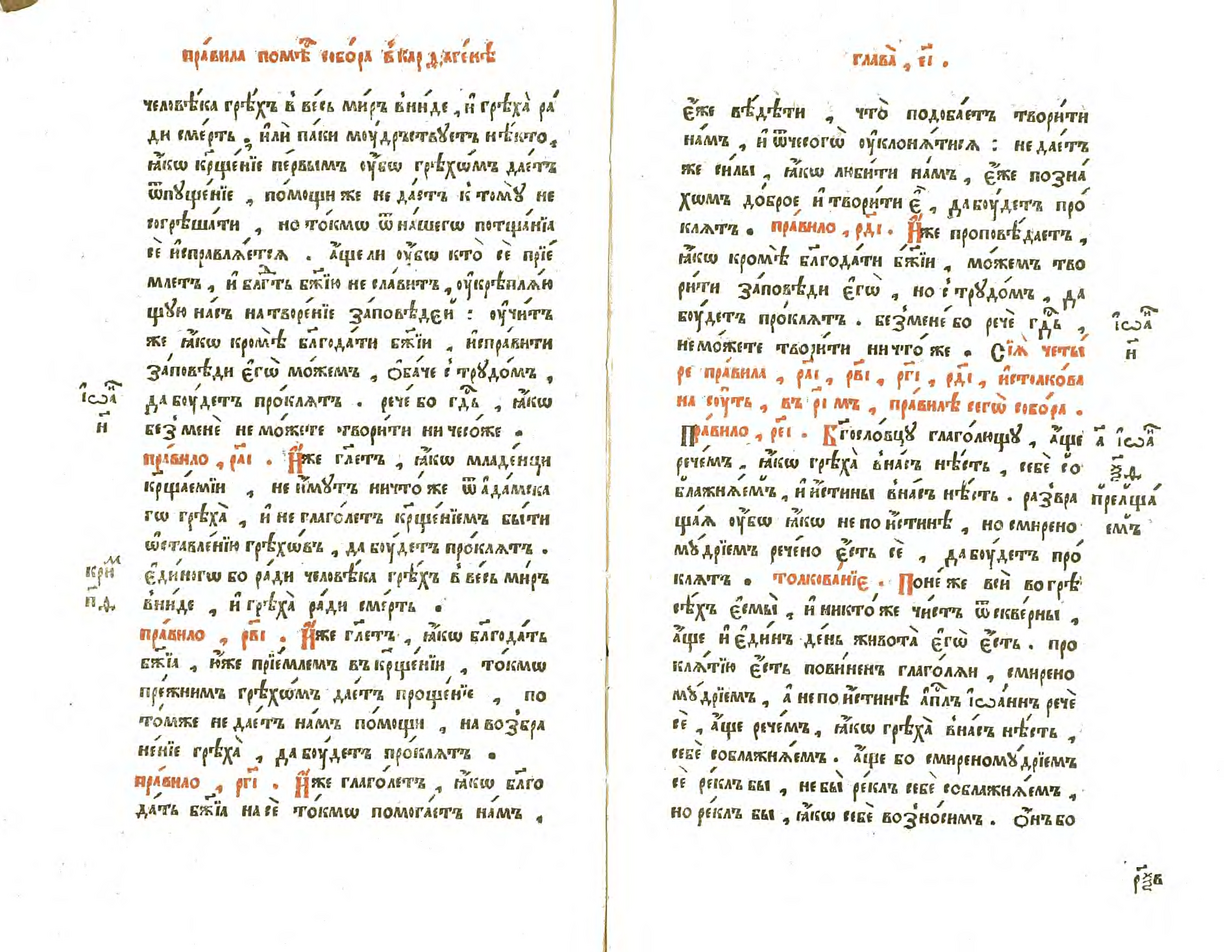 пра́вила помѣ́стⷩ҇ собо́ра в̾ карѳаге́нѣ
человѣ́ка грѣ́хъ в̾ ве́сь ми́ръ вни́де , и҆ грѣха̀ ра́
ди сме́рть , и҆лѝ па́ки моу́дръствꙋетъ нѣ́кто ,
ꙗ҆́кѡ кр҃ще́нїе пе́рвымъ оу҆́бѡ грѣхѡ́мъ дае́тъ
ѿпꙋще́нїе , по́мощи же не дае́тъ к̾ томꙋ̀ не
согрѣша́ти , но то́кмѡ ѿ на́шегѡ потща́нїѧ
сѐ и҆справлѧ́етсѧ . а҆́ще ли оу҆́бѡ кто̀ сѐ прїе́
млетъ , и҆ блгⷣть бж҃їю не сла́витъ , оу҆крѣплѧ́ю
щꙋю на́съ на творе́нїе за́повѣде́й : оу҆чи́тъ
же ꙗ҆́кѡ кромѣ̀ блг҃ода́ти бж҃їи , и҆спра́вити
за́повѣди є҆гѡ̀ мо́жемъ , ѻ҆ба́че с̾ трꙋдо́мъ ,
да боу́детъ про́клѧтъ . рече́ бо гдⷭ҇ь , ꙗ҆́кѡ
без̾ менѐ не мо́жете твори́ти ничесо́же .
пра́вило , р҃аі . И҆́же гл҃етъ , ꙗ҆́кѡ младе́нци
кр҃ща́емїи , не и҆́мꙋтъ ничто́же ѿ а҆да́мска
гѡ грѣха̀ , и҆ не глаго́летъ кр҃ще́нїемъ бы́ти
ѡ҆ставле́нїю грѣхо́въ , да боу́детъ про́клѧтъ .
є҆ди́ногѡ бо ра́ди человѣ́ка грѣ́хъ в̾ ве́сь ми́ръ
вни́де , и҆ грѣха̀ ра́ди сме́рть .
пра́вило , р҃ві . И҆́же гл҃етъ , ꙗ҆́кѡ блг҃ода́ть
бж҃їѧ , ю҆́же прїе́млем въ кр҃ще́нїи , то́кмѡ
пре́жним грѣхѡ́мъ дае́тъ проще́нїе , по
то́мже не дае́тъ на́мъ по́мощи , на возбра
не́нїе грѣха̀ , да боу́детъ про́клѧтъ .
пра́вило , р҃гі . И҆́же глаго́летъ , ꙗ҆́кѡ блг҃о
да́ть бж҃їѧ на сѐ то́кмѡ помога́етъ на́мъ ,
і҆ѡаⷩ҇
н҃
криⷨ
п҃д
глава̀ , є҃і .
є҆́же вѣ́дѣти , что̀ подоба́етъ твори́ти
на́мъ , и҆ ѿчесогѡ̀ оу҆клонѧ́тисѧ : не дае́тъ
же си́лы , ꙗ҆́кѡ люби́ти на́мъ , є҆́же позна́
хѡмъ до́брое и҆ твори́ти є҆̀ , да боу́детъ про́
клѧтъ . пра́вило , р҃ді . И҆́же проповѣ́даетъ ,
ꙗ҆́кѡ кромѣ̀ блг҃ода́ти бж҃їи , мо́жем тво
ри́ти за́повѣди є҆гѡ̀ , но с̾ трꙋдо́мъ , да
боу́детъ про́клѧтъ . без̾ мене́ бо речѐ гдⷭ҇ь ,
не мо́жете твори́ти ничто́же . Сїѧ̀ четы́
ре пра́вила , р҃аі , р҃ві , р҃гі , р҃ді , и҆столко́ва
на соу́ть , въ р҃і мъ , пра́вилѣ сегѡ̀ собо́ра .
Пра́вило , р҃еі . Бг҃осло́вцꙋ глаго́лющꙋ , а҆́ще
рече́мъ , ꙗ҆́кѡ грѣха̀ в̾ на́съ нѣ́сть , себѐ со
блажнѧ́емъ , и҆ и҆́стины в̾ на́съ нѣ́сть . развра
ща́ѧ оу҆́бѡ ꙗ҆́кѡ не по и҆́стинѣ , но смирено
мꙋ́дрїем речено̀ є҆́сть сѐ , да боу́детъ про́
клѧтъ . толкова́нїе . Поне́же всѝ во грѣ
сѣ́хъ є҆смы̀ , и҆ никто́же чи́стъ ѿ скве́рны ,
а҆́ще и҆ є҆ди́нъ де́нь живота̀ є҆гѡ̀ є҆́сть . про
клѧ́тїю є҆́сть пови́нен глаго́лѧи , смирено
мꙋ́дрїемъ , а не по и҆́стинѣ а҆пⷭ҇лъ і҆ѡа́ннъ речѐ
сѐ , а҆́ще рече́мъ , ꙗ҆́кѡ грѣха̀ в̾ на́съ нѣ́сть ,
себѐ соблажнѧ́емъ . а҆́ще бо смиреномꙋ́дрїемъ
сѐ ре́клъ бы , не бы̀ ре́клъ себѐ соблажнѧ́емъ ,
но ре́клъ бы , ꙗ҆́кѡ себѐ возно́симъ . Ѻ҆́нъ бо
і҆ѡаⷩ҇
н҃
а҃ і҆ѡаⷩ҇
прельща́
емъ